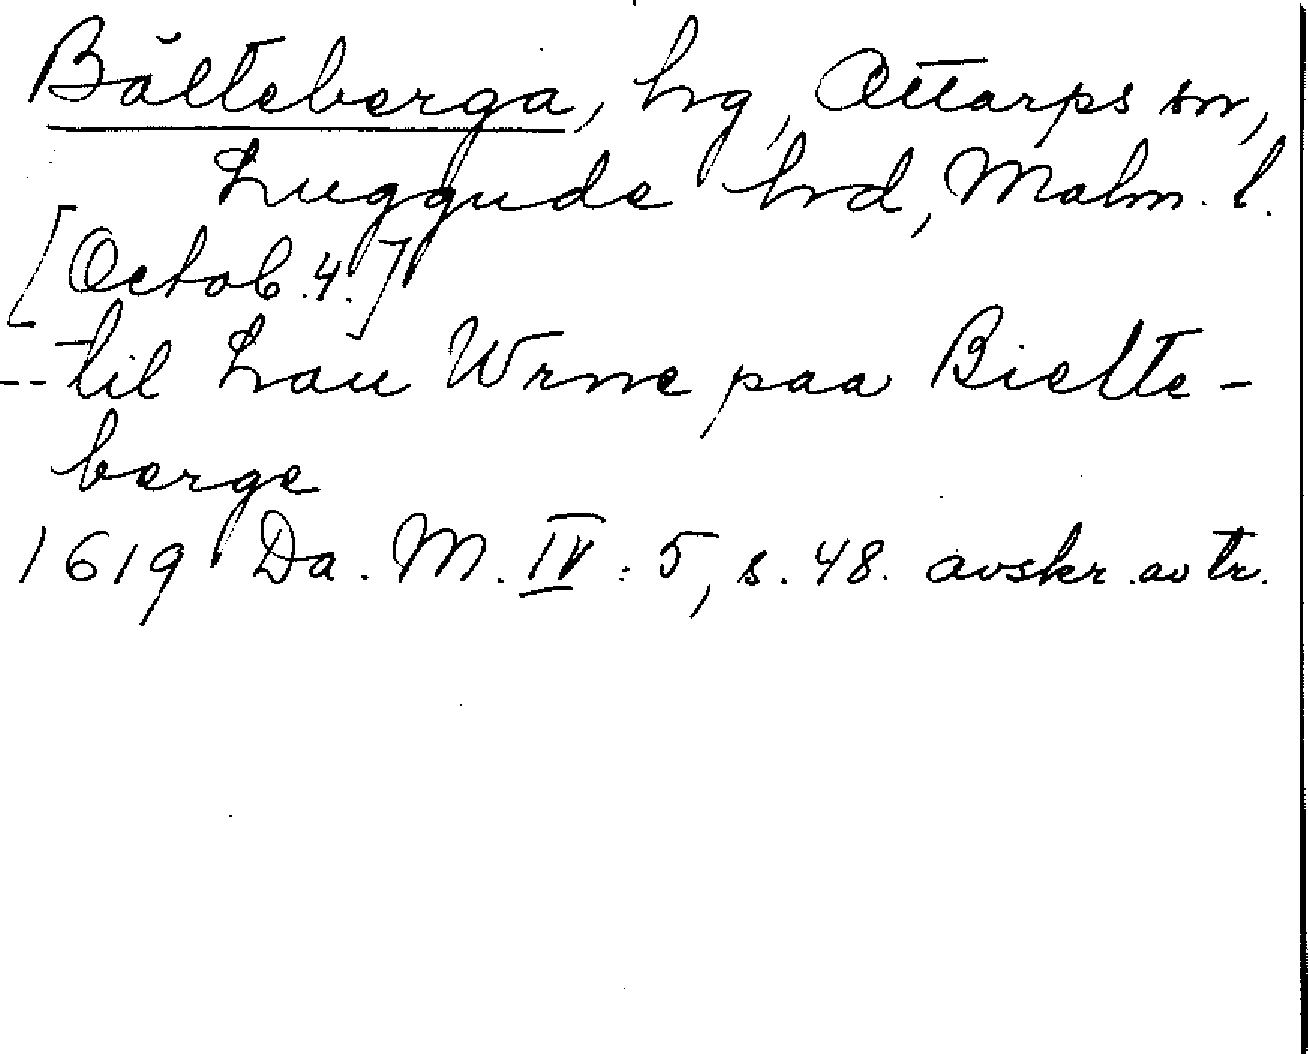 Bälteberga, hrg, Ottarps sn,
Luggude hrd, Malm. l.
[Octob. 4.]
-- til Lau Wrne paa Bielte-
berge
1619 Da. M. IV: 5, s. 48. avskr. av tr.